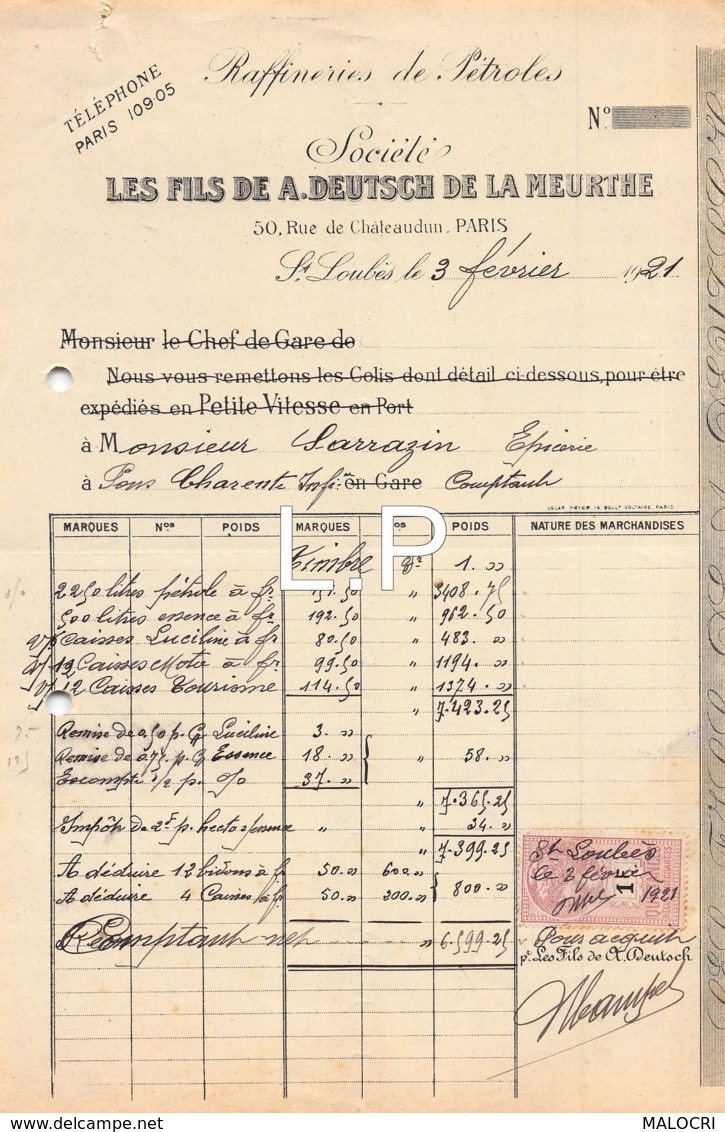 Raffineries de Pétroles
TÉLÉPHONE
PARIS 109-05
N°
Société
LES FILS DE A. DEUTSCH DE LA MEURTHE
50, Rue de Châteaudun, PARIS
St Loubès le 3 février 1921
Monsieur le Chef de Gare de
Nous vous remettons les Colis dont détail ci-dessous, pour être
expédiés en Petite Vitesse en Port
à Monsieur Sarrazin Epicerie
à Pons Charente Infre en Gare Comptant
OSCAR MEYER, 15, BOULt VOLTAIRE, PARIS
L.P
MARQUES Nos POIDS MARQUES Nos POIDS NATURE DES MARCHANDISES
Timbre fr 1. "
2250 litres pétrole à fr 151.50 " 3408.75
500 litres essence à fr 192.50 " 962.50
6 Caisses Luciline à fr 80.50 " 483. "
12 Caisses Moto à fr 99.50 " 1194. "
12 Caisses Tourisme 114.50 " 1374. "
" 7.423.25
Remise de 0,50 p. Luciline 3. "
Remise de 0,75 p. Essence 18. " " 58. "
Escompte 1/2 p. % 37. "
" 7.365.25
Impôt de 2F p. hecto essence " " 34. "
" 7.399.25
A déduire 12 bidons à fr 50. " 600 "
A déduire 4 Caisses à fr 50. " 200. " 800. "
Comptant net " 6.599.25
St Loubès
le 3 février
1921
1
Pour acquit
pr Les Fils de A. Deutsch
MALOCRI